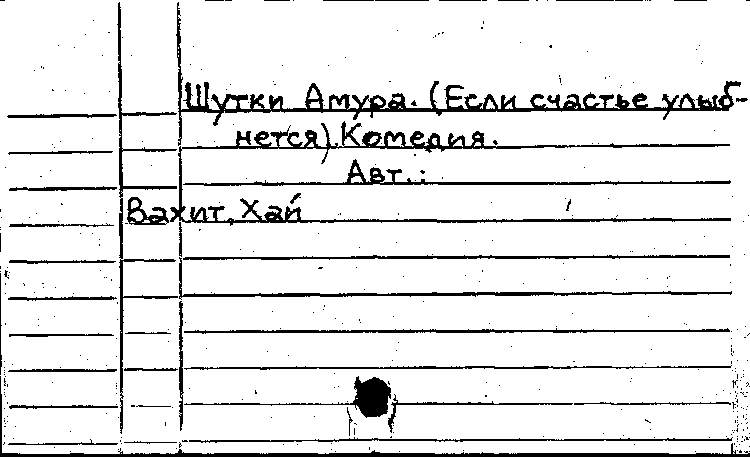 Шутки Амура. (Если счастье улыб-
нется). Комедия.
Авт.:
Вахит, Хай